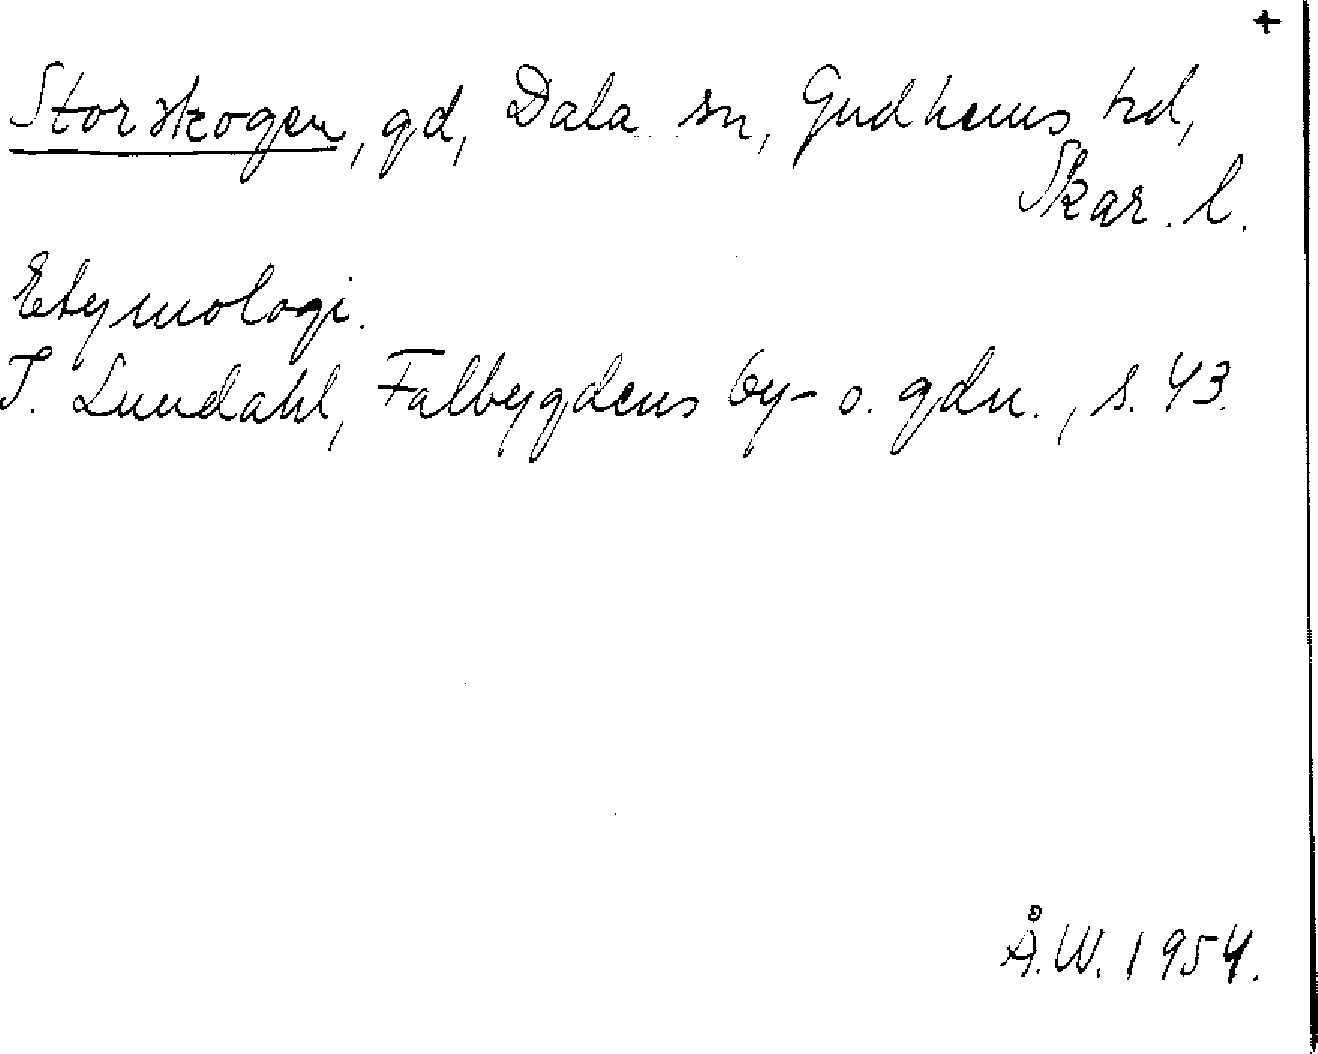 +
Storskogen, gd, Dala sn, Gudhems hd,
Skar. l.
Etymologi.
I. Lundahl, Falbygdens by- o. gdn., s. 43.
Å.W. 1954.